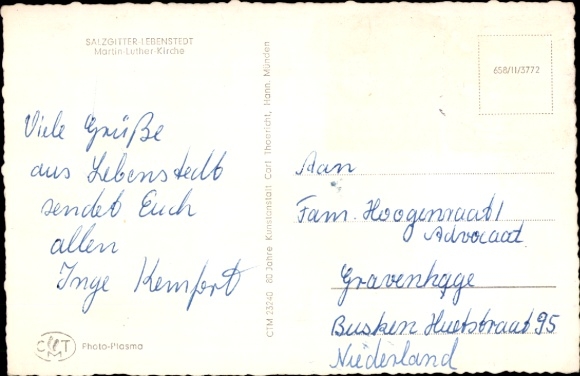 SALZGITTER-LEBENSTEDT
Martin-Luther-Kirche
Viele Grüße
aus Lebenstedt
sendet Euch
allen
Inge Kempert
CTM
Photo-Plasma
CTM 23240 80 Jahre Kunstanstalt Carl Thoericht, Hann. Münden
658/II/3772
Aan
Fam. Hoogenraat /
Advocaat
Gravenhage
Busken Huetstraat 95
Niederland